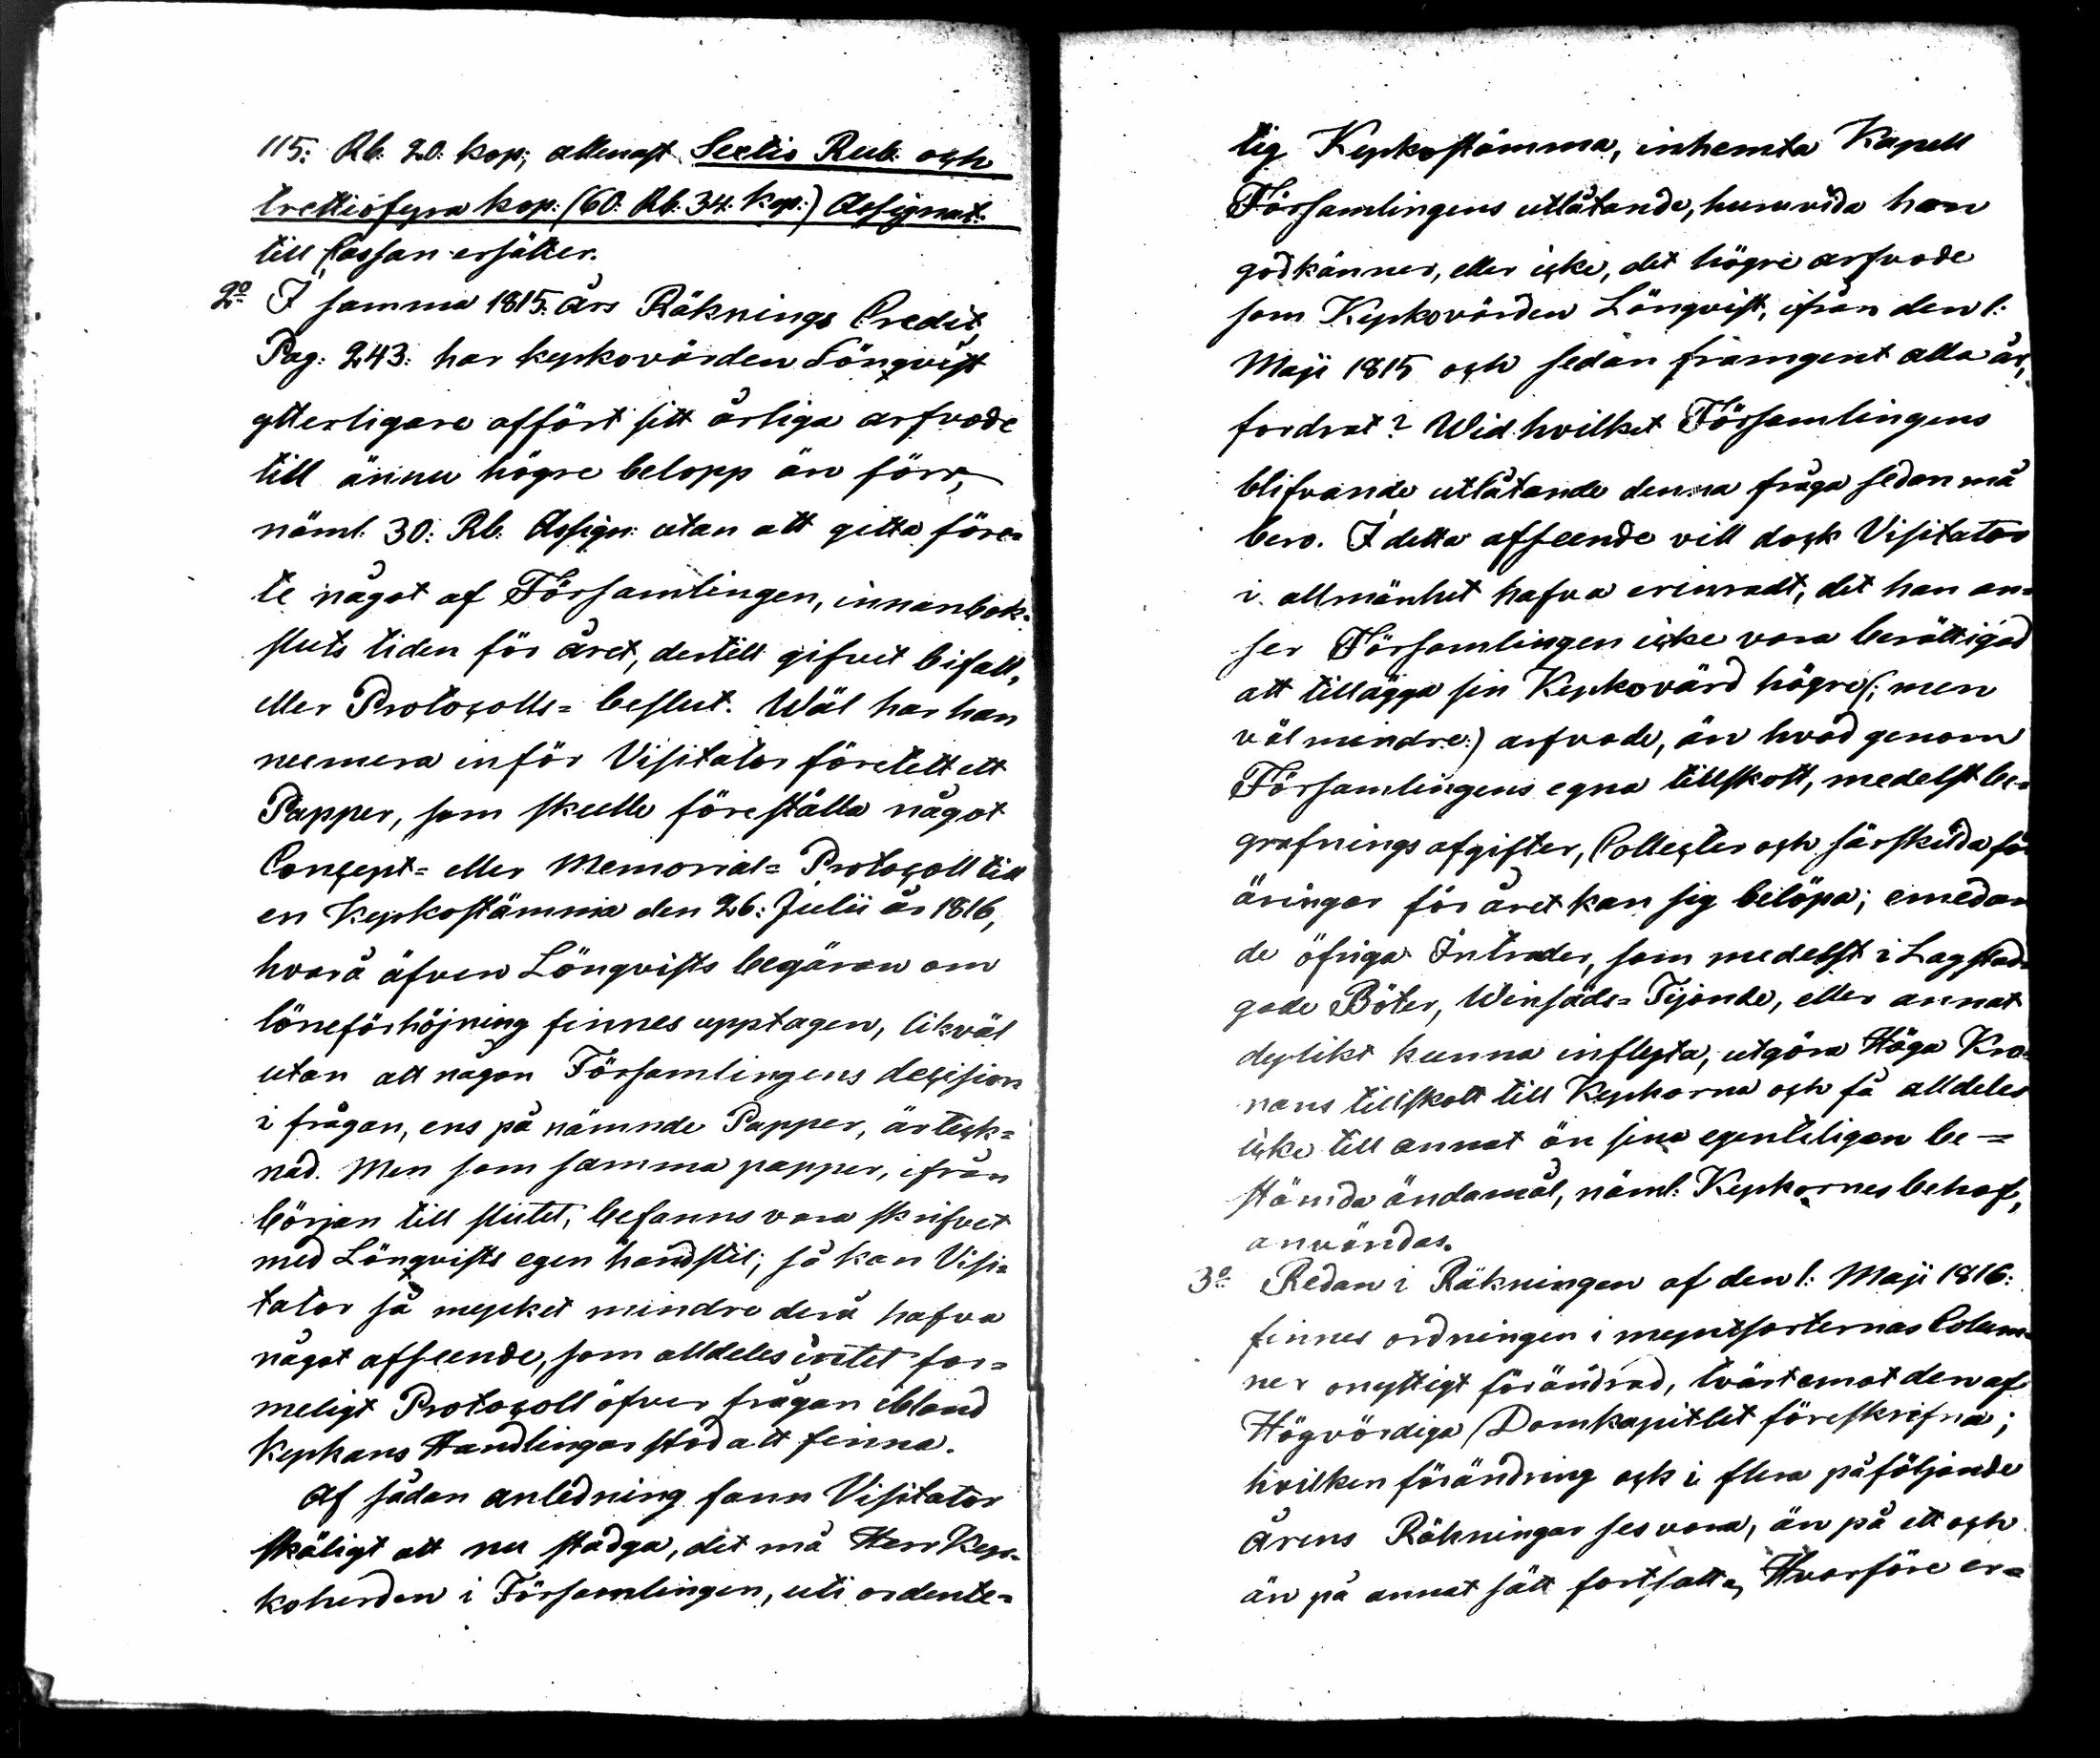 115: Rb. 20. kop; allenast Sextio Rub. och
trettiofyra kop: (60: Rb: 34: kop:) Assignat:
till Cassan ersätter.
2º I samma 1815: års Räknings Credit
Pag: 243: har kyrkovärden Lönqvist
ytterligare affört sitt årliga arfvode
till ännu högre belopp än förr,
näml: 30: Rb. Assign: utan att gitta före=
te något af Församlingen, innan bok=
sluts tiden för året, dertill gifvet bifall,
eller Protocolls= beslut. Wäl har han
numera inför Visitator företett ett
Papper, som skulle föreställa något
Concept= eller Memorial= Protocoll till
en Kyrkostämma den 26: Julii år 1816,
hvarå äfven Lönqvists begäran om
löneförhöjning finnes upptagen, likväl
utan all någon Församlingens decision
i frågan, ens på nämnde Papper, är teck=
nad. Men som samma papper, ifrån
början till slutet, befanns vara skrifvet
med Lönqvists egen handstil; så kan Visi=
tator så mycket mindre derå hafva
något afseende, som alldeles intet for=
meligt Protocoll öfver frågan ibland
Kyrkans Handlingar stod att finna.
Af sådan anledning fann Visitator
skäligt att nu stadga, det må Herr Kyr=
koherden i Församlingen, uti ordente=
lig Kyrkostämma, inhemta Kapell
Församlingens utlåtande, huruvida hon
godkänner, eller icke, det högre arfvode
som Kyrkovärden Lönqvist, ifrån den 1:
Maji 1815 och sedan framgent alla år,
fordrat? Wid hvilket Församlingens
blifvande utlåtande denna fråga sedan må
bero. I detta afseende vill dock Visitator
i allmänhet hafva erinradt, det han an=
ser Församlingen icke vara berättigad
att tillägga sin Kyrkovärd högre (: men
väl mindre:) arfvode, än hvad genom
Församlingens egna tillskott, medelst be=
grafnings afgifter, Collecter och särskilda för
äringar för året kan sig belöpa; emedan
de öfriga Intrader, som medelst i Lag stad
gade Böter, Winsäds= Tijonde, eller annat
dylikt kunna inflyta, utgöra Höga Kro=
nans tillskott till Kyrkorna och få alldeles
icke till annat än sina egenteligen be=
stämda ändamål, näml: Kyrkornes behof,
användas.
3º Redan i Räkningen af den 1: Maji 1816:
finnes ordningen i myntsorternas Colum=
ner onyttigt förändrad, tvärt emot den af
Högvördiga Domkapitlet föreskrifna;
hvilken förändring ock i flera påföljande
årens Räkningar ses vara, än på ett och
än på annat sätt fortsatt. Hvarföre er=